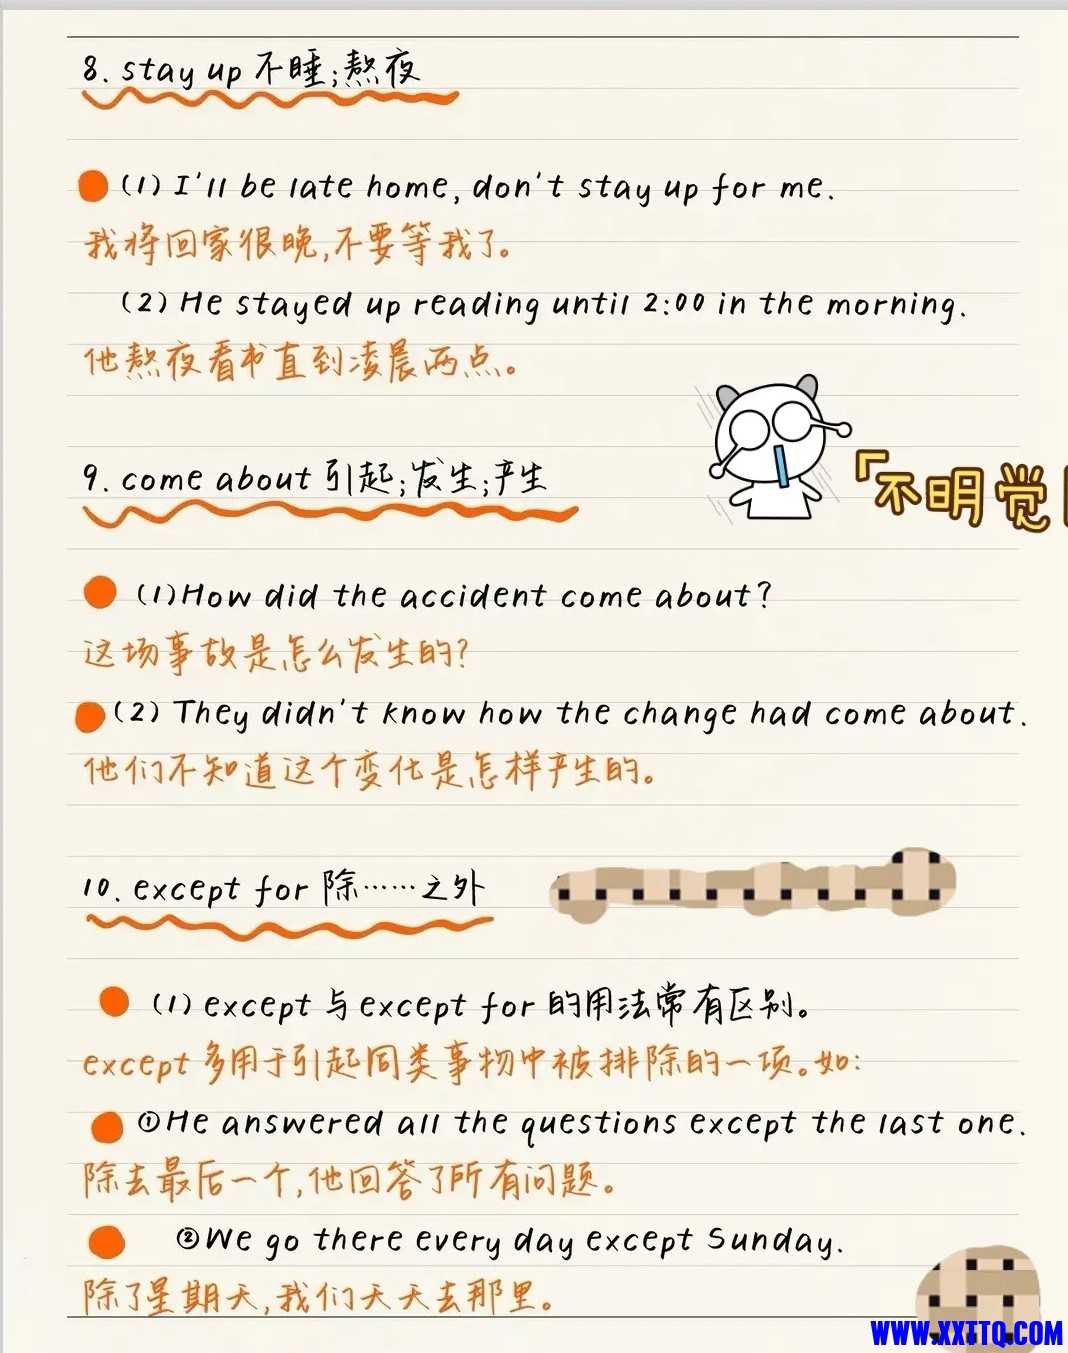 8. stay up 不睡;熬夜
(1) I'll be late home, don't stay up for me.
我将回家很晚,不要等我了。
(2) He stayed up reading until 2:00 in the morning.
他熬夜看书直到凌晨两点。
9. come about 引起;发生;产生
「不明觉
(1)How did the accident come about?
这场事故是怎么发生的?
(2) They didn't know how the change had come about.
他们不知道这个变化是怎样产生的。
10. except for 除……之外
(1) except 与 except for 的用法常有区别。
except 多用于引起同类事物中被排除的一项。如:
①He answered all the questions except the last one.
除去最后一个,他回答了所有问题。
②We go there every day except Sunday.
除了星期天,我们天天去那里。
WWW.XXTTQ.COM